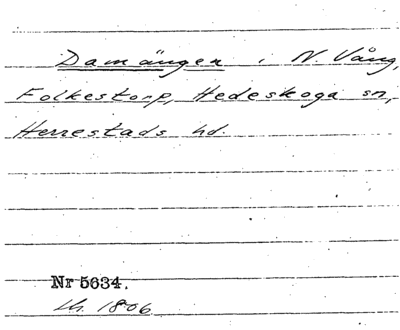 Damängen i N. Vång,
Folkestorp, Hedeskoga sn,
Herrestads hd.
Nr 5634.
lh. 1806